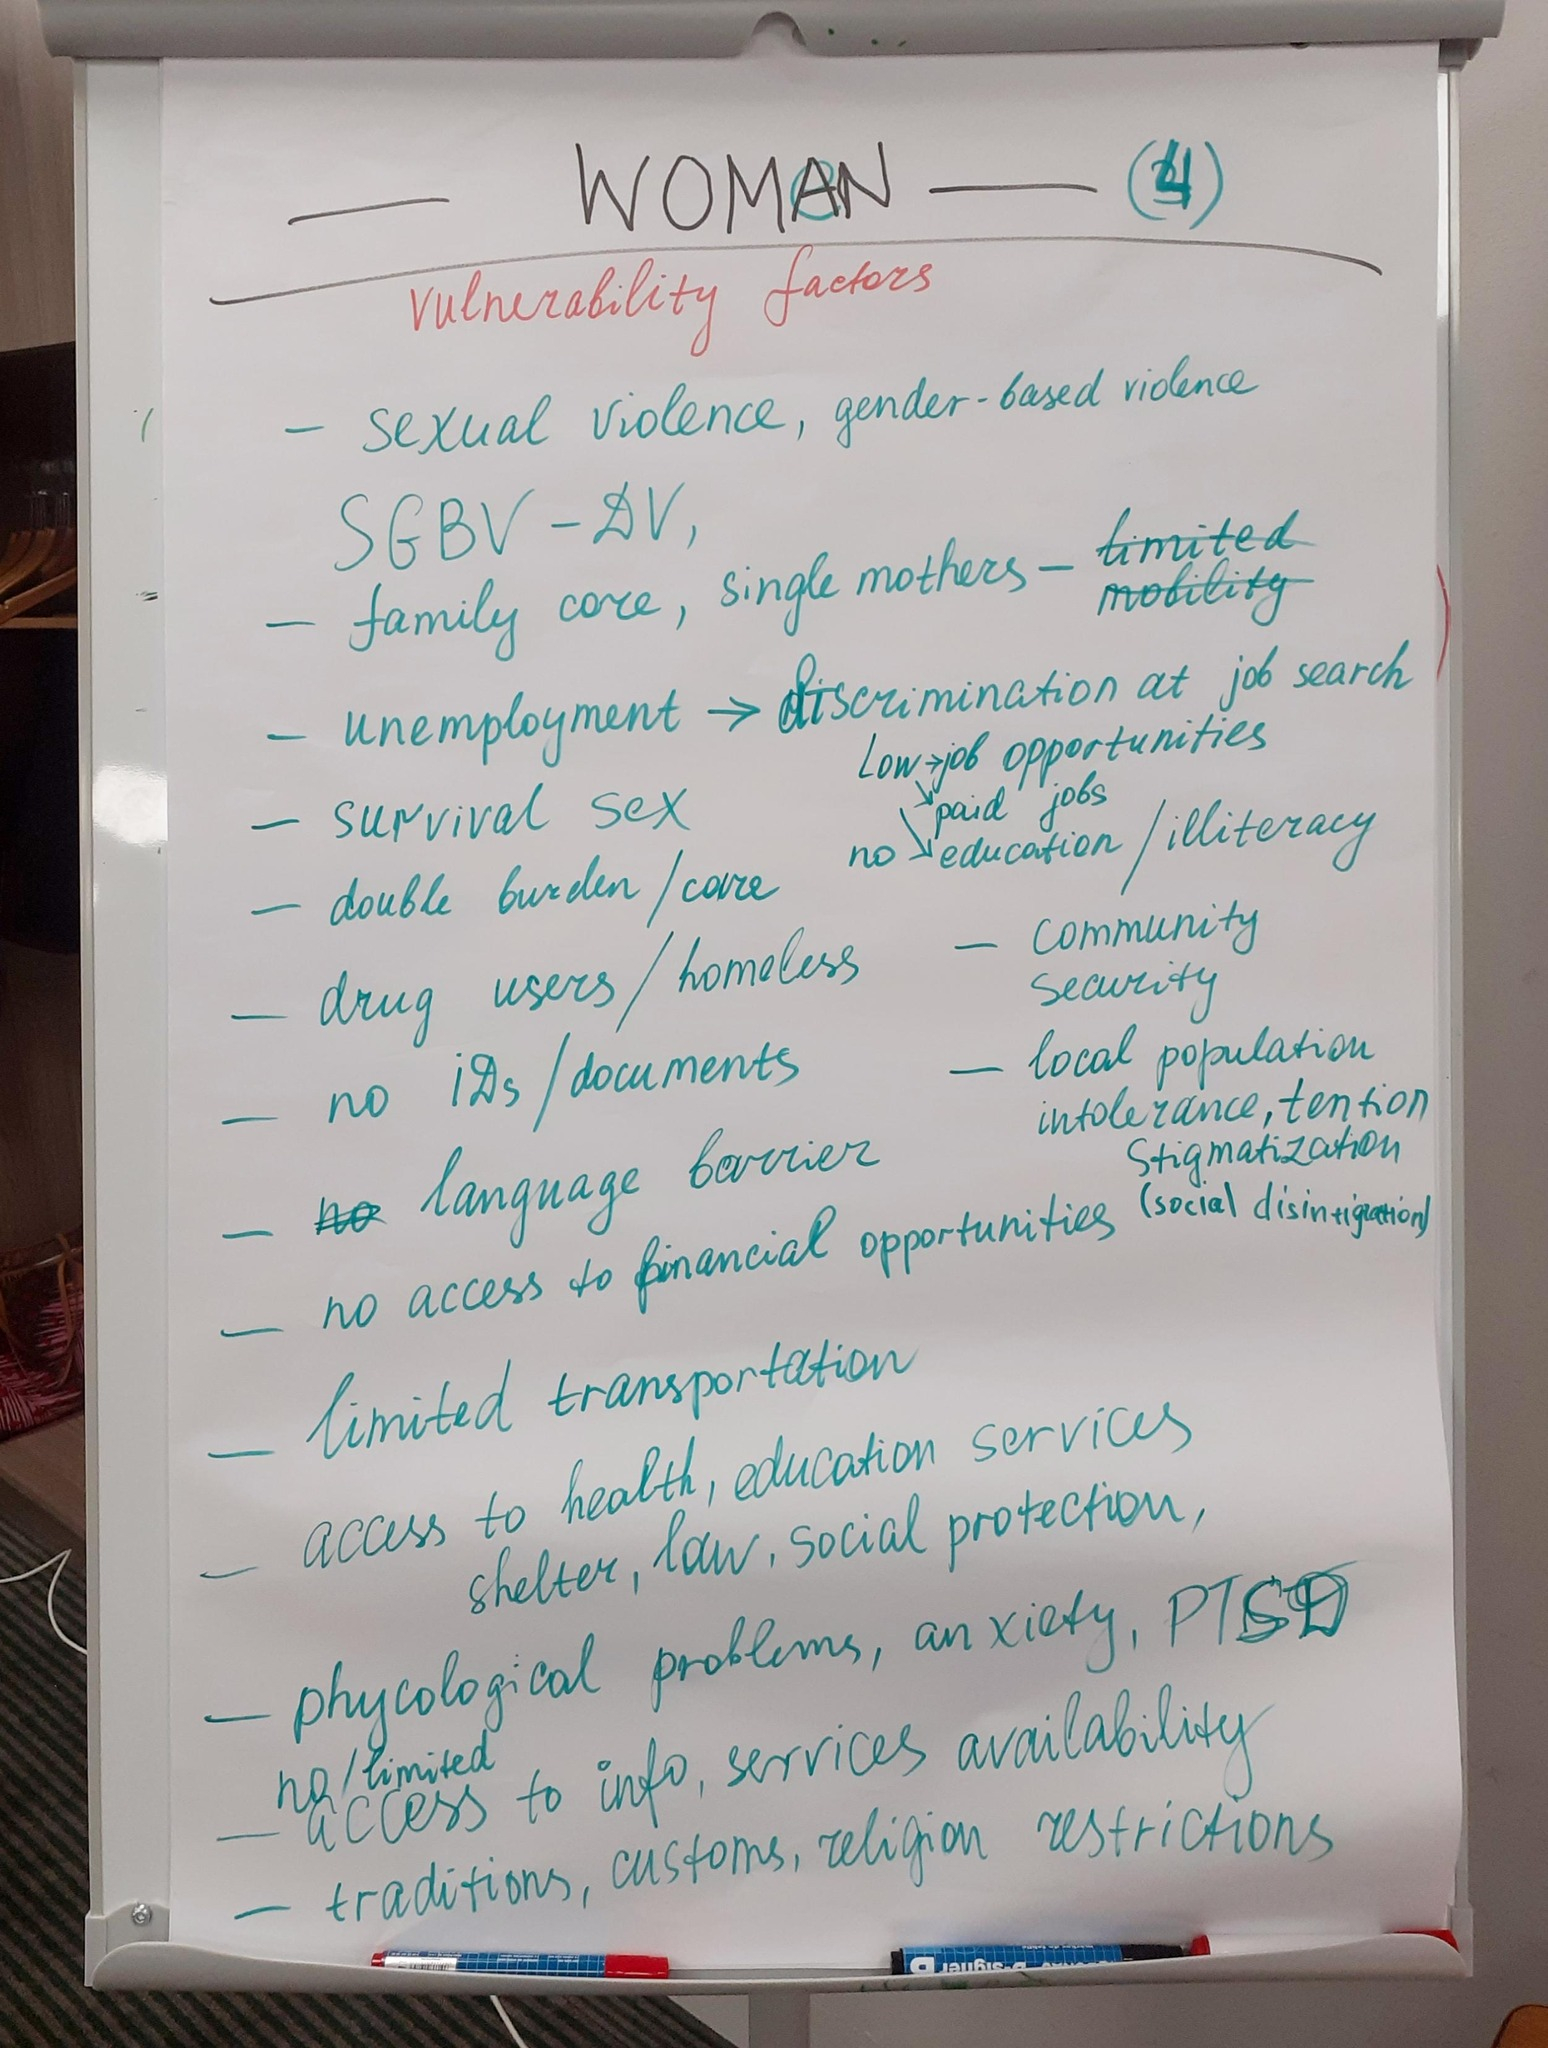 — WOMEN — (4)
vulnerability factors
— sexual violence, gender-based violence
SGBV - DV,
— family care, single mothers — limited
mobility
— unemployment → discrimination at job search
Low → job opportunities
— survival sex
paid jobs
no education / illiteracy
— double burden / care
— drug users / homeless
— no iDs / documents
— no language barrier
— community
security
— local population
intolerance, tention
Stigmatization
(social disintigration)
— no access to financial opportunities
— limited transportation
— access to health, education services
shelter, law, social protection,
— phycological problems, anxiety, PTSD
no / limited
— access to info, services availability
— traditions, customs, religion restrictions